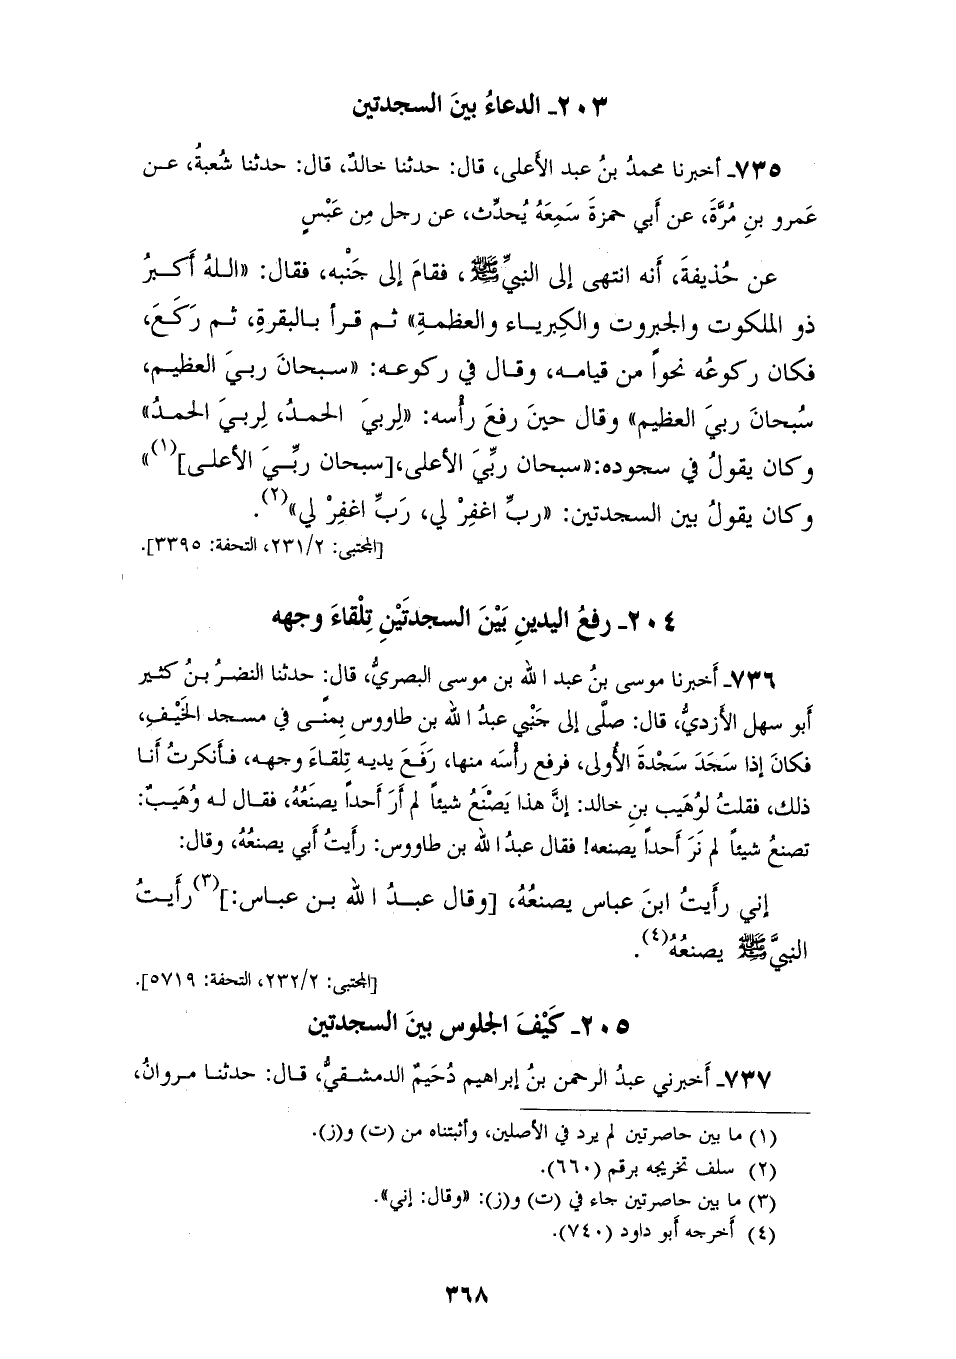 ٢٠٣ـ الدعاءُ بينَ السجدتين
٧٣٥ـ أخبرنا محمدُ بنُ عبد الأَعلى، قال: حدثنا خالدٌ، قال: حدثنا شُعبةُ، عـن
عَمرو بنِ مُرَّةَ، عن أَبي حمزةَ سَمِعَهُ يُحدِّث، عن رجل مِن عَبْسٍ
عن حُذيفةَ، أَنه انتهى إلى النبيِّ ﷺ، فقامَ إلى جَنْبه، فقال: «اللهُ أَكـبرُ
ذو الملكوت والجبروت والكِبريـاء والعظمـةِ» ثـم قـرأ بـالبقرةِ، ثـم رَكَـعَ،
فكان ركوعُه نحواً من قيامـه، وقـال في ركوعـه: «سـبحانَ ربـيَ العظيـم،
سُبحانَ ربيَ العظيم» وقال حينَ رفعَ رأْسه: «لِربيَ الحمدُ، لِربيَ الحمدُ»
وكان يقولُ في سجوده:«سبحان ربِّيَ الأعلى،[سبحان ربِّـيَ الأعلـى](١)»
وكان يقولُ بين السجدتين: «ربِّ اغفِرْ لي، رَبِّ اغفِرْ لي»(٢).
[المجتبى: ٢٣١/٢، التحفة: ٣٣٩٥].
٢٠٤ـ رفعُ اليدينِ بَيْنَ السجدتَيْنِ تِلْقاءَ وجهه
٧٣٦ـ أَخبرنا موسى بنُ عبد الله بن موسى البصريُّ، قال: حدثنا النضرُ بـنُ كثـير
أَبو سهل الأَزديُّ، قال: صلَّى إلى جَنْبي عبدُ الله بن طاووس بِمنًـى في مسجد الخَيْـفِ،
فكانَ إذا سَجَدَ سَجْدةَ الأُولى، فرفع رأْسَه منها، رَفَـعَ يديـه تِلقـاءَ وجهـه، فـأَنكرتُ أَنـا
ذلك، فقلتُ لوُهَيب بنِ خالد: إنَّ هذا يَصْنَعُ شيئاً لم أَرَ أَحداً يصنَعُهُ، فقـال لـه وُهَيـبٌ:
تصنعُ شيئاً لم نَرَ أَحداً يصنعه! فقال عبدُ الله بن طاووس: رأَيتُ أَبي يصنعُهُ، وقال:
إني رأَيتُ ابنَ عباس يصنعُهُ، [وقال عبـدُ الله بـن عبـاس:](٣) رأَيـتُ
النبيَّ ﷺ يصنعُهُ(٤).
[المجتبى: ٢٣٢/٢، التحفة: ٥٧١٩].
٢٠٥ـ كَيْفَ الجلوس بينَ السجدتين
٧٣٧ـ أَخبرني عبدُ الرحمن بنُ إبراهيم دُحَيمٌ الدمشـقيُّ، قـال: حدثنـا مـروانُ،
(١) ما بين حاصرتين لم يرد في الأصلين، وأثبتناه من (ت) و(ز).
(٢) سلف تخريجه برقم (٦٦٠).
(٣) ما بين حاصرتين جاء في (ت) و(ز): «وقال: إني».
(٤) أخرجه أبو داود (٧٤٠).
٣٦٨